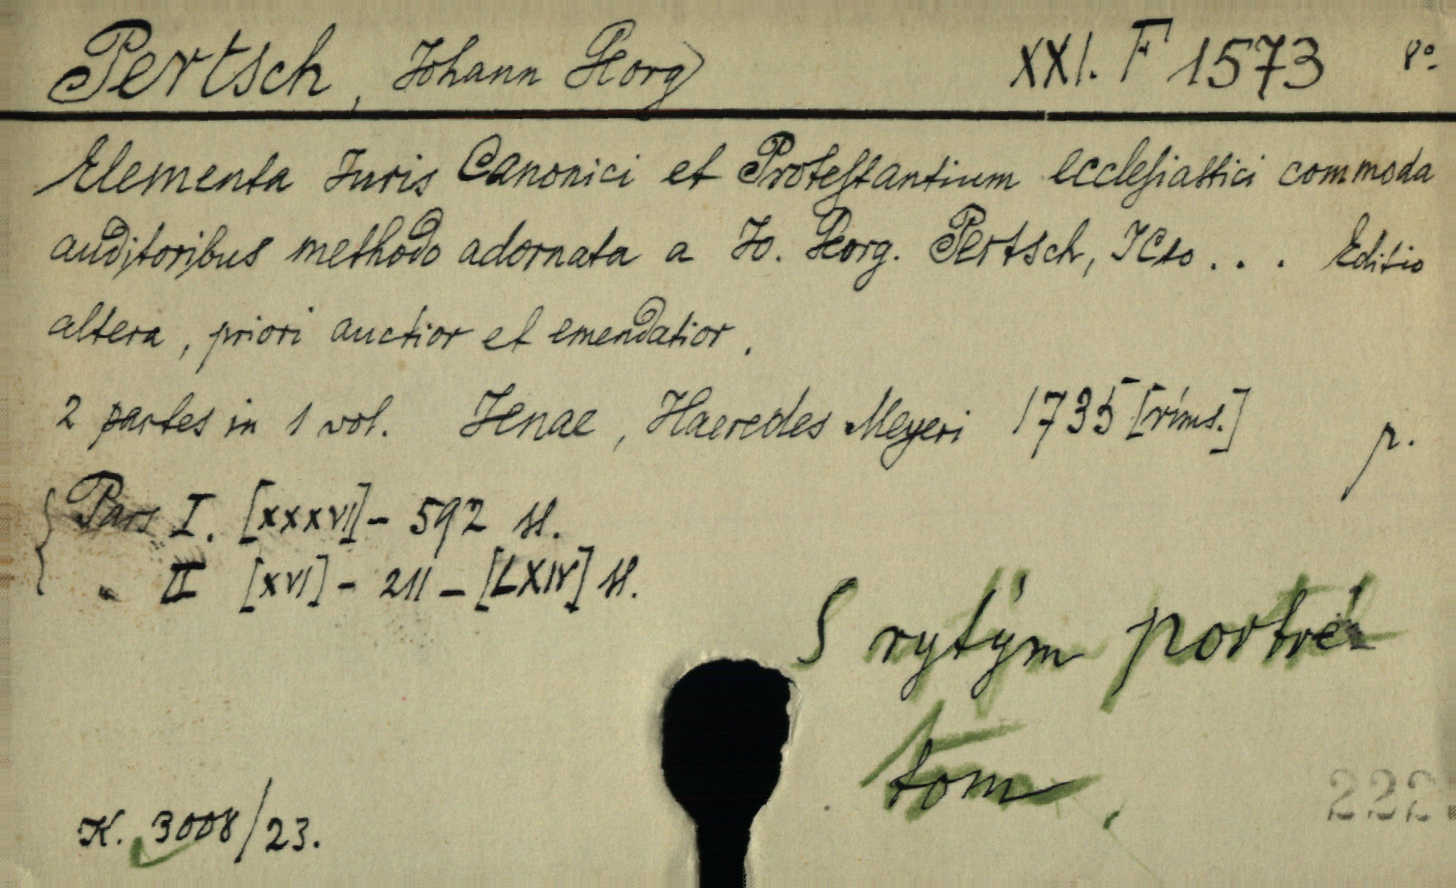 Pertsch, Johann Georg XXI. F 1573 8°.
Elementa Juris Canonici et Protestantium ecclesiastici commoda
auditoribus methodo adornata a Jo. Georg. Pertsch, JCto... Editio
altera, priori auctior et emendatior.
2 partes in 1 vol. Jenae, Haeredes Meyeri 1735 [říms.] p.
Pars I. [XXXVI] - 592 st.
" II [XVI] - 211 - [LXIV] st.
S rytým portré
tom.
K. 3008/23.
222